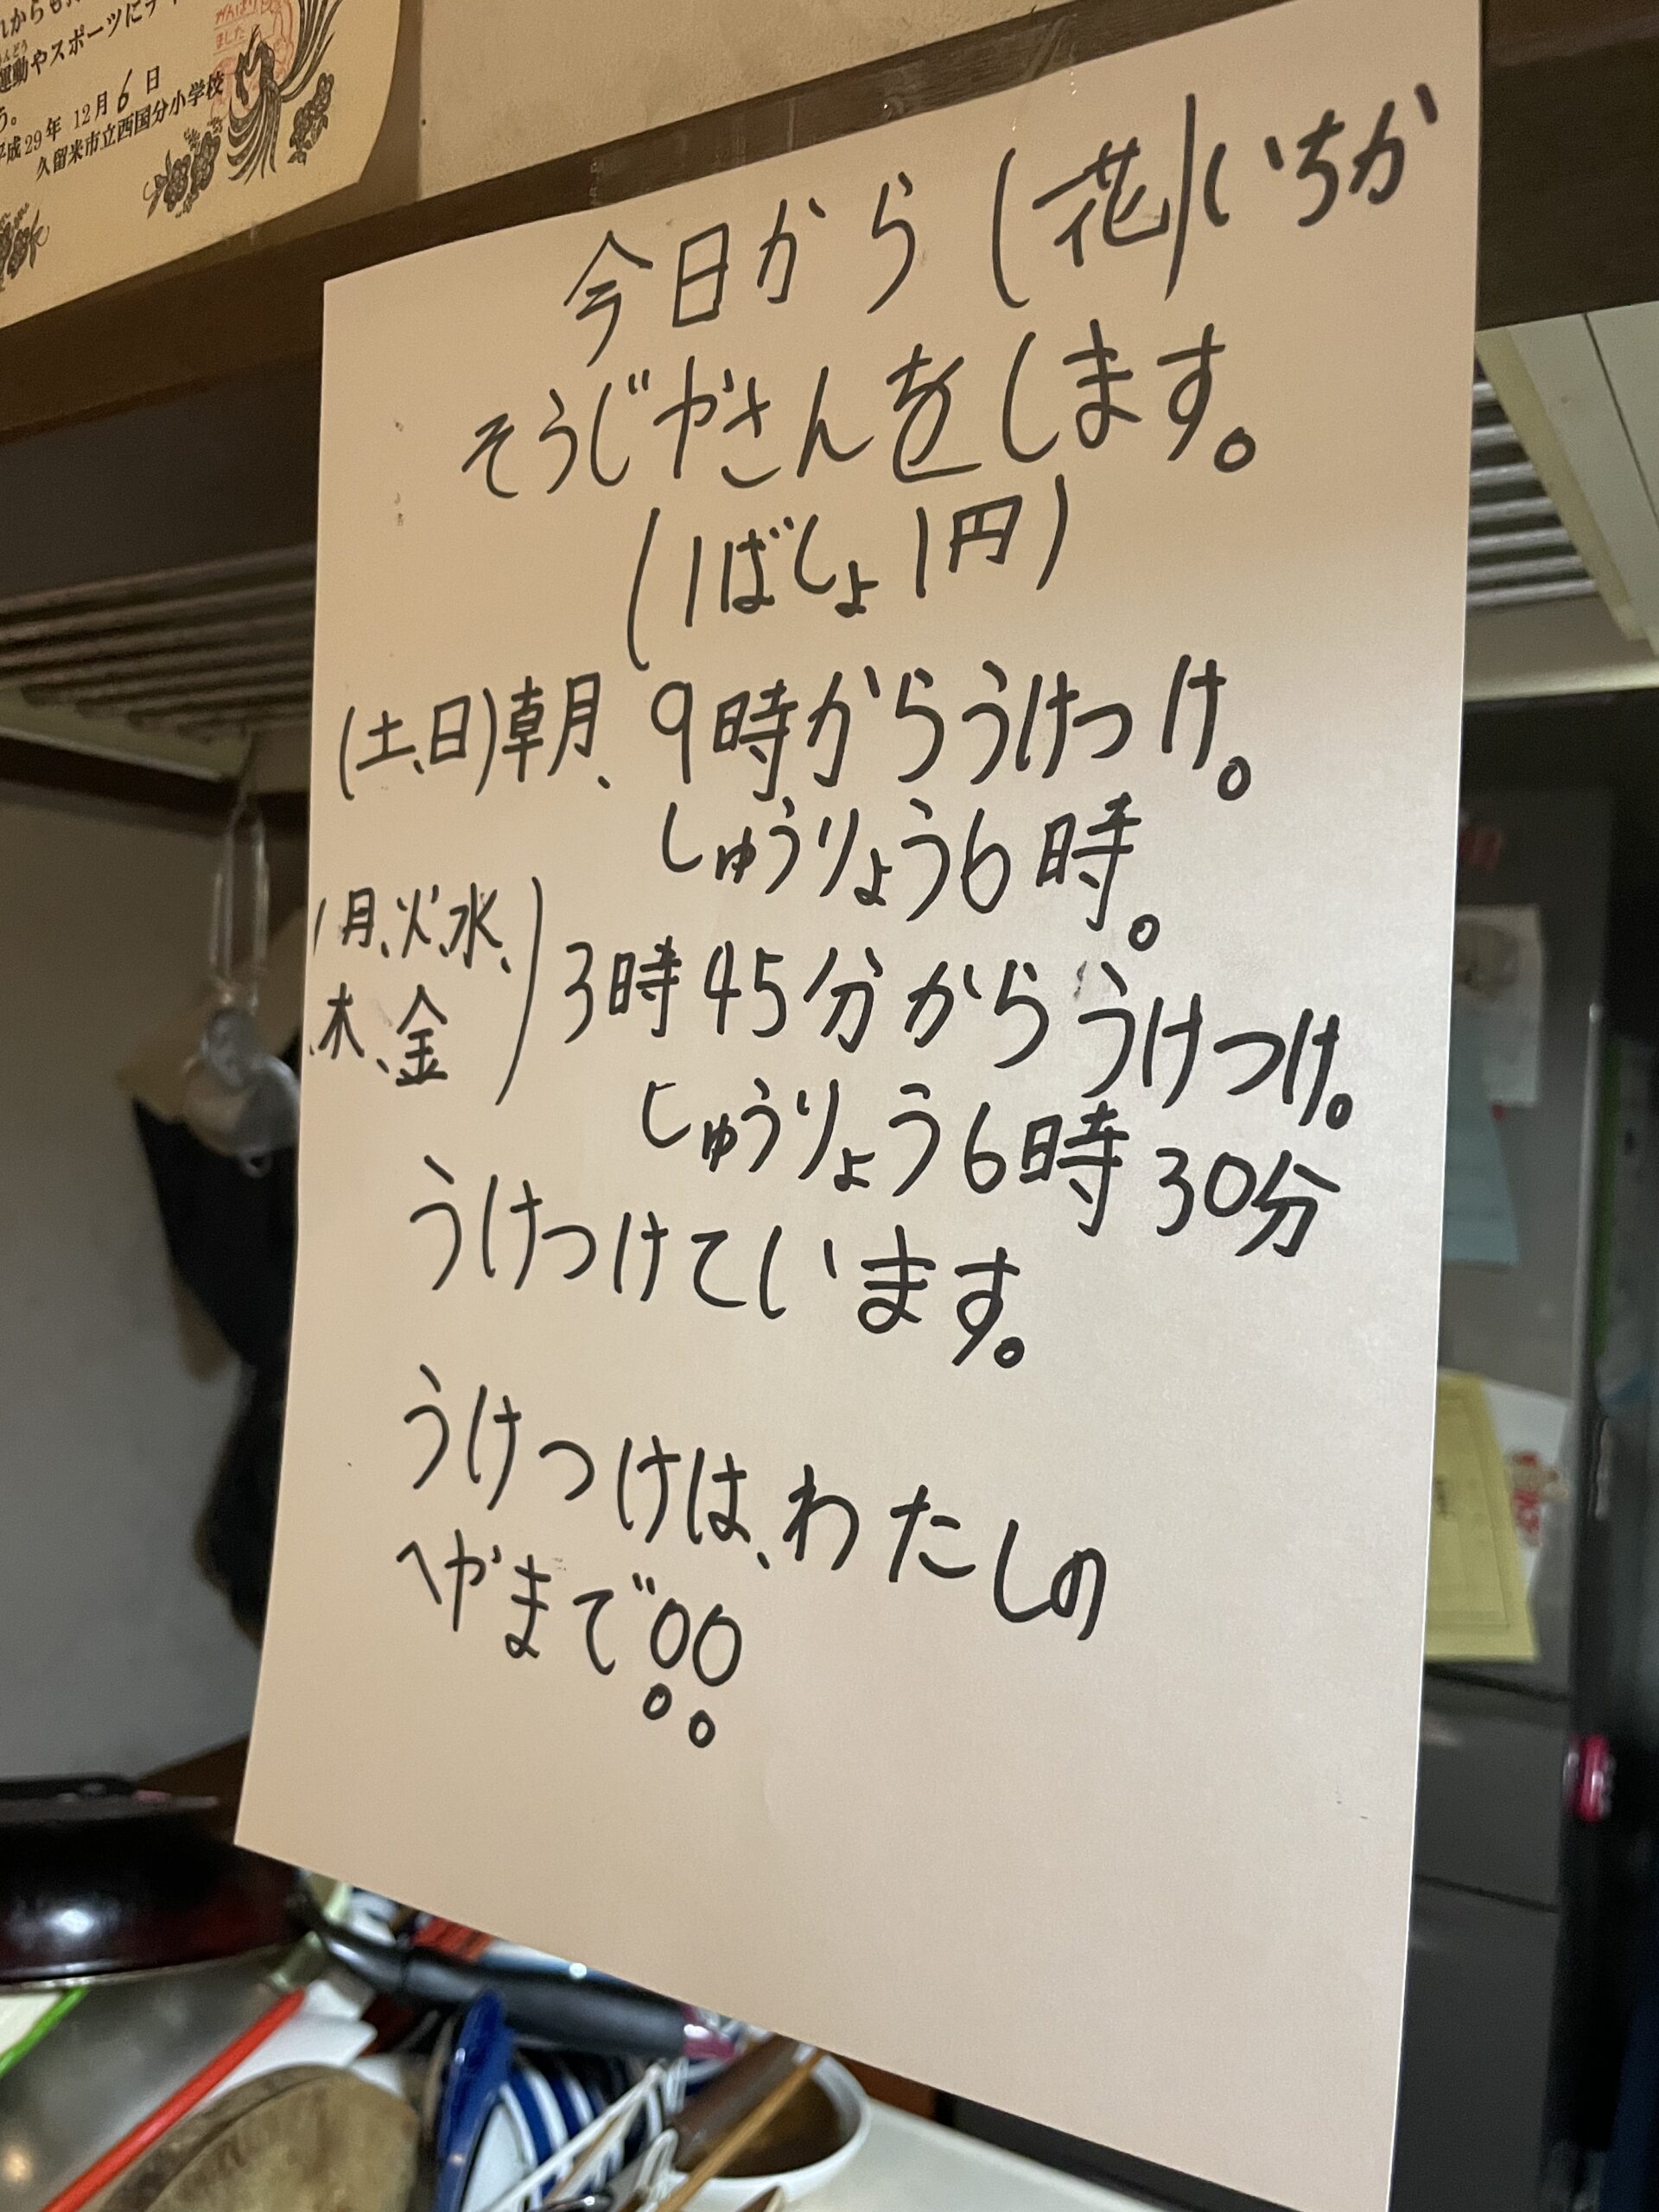 運動やスポーツに
平成29年 12月 6日
久留米市立西国分小学校
今日から(一花)いちか
そうじやさんをします。
(1ばしょ1円)
(土、日)朝、9時からうけつけ。
しゅうりょう6時。
(月、火、水、
木、金)3時45分からうけつけ。
しゅうりょう6時30分
うけつけています。
うけつけは、わたしの
へやまで!!